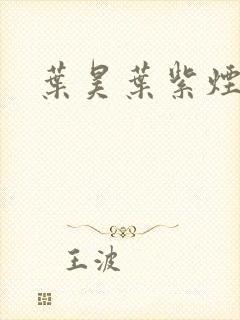 葉昊葉紫煙
王波